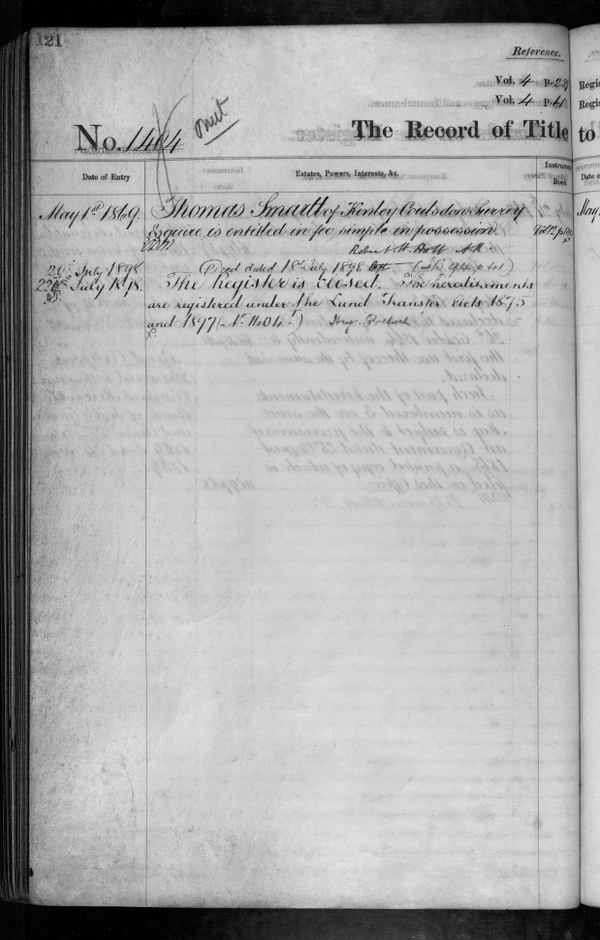 121
Reference.
Vol. 4 p. 23
Vol. 4 p. 41
omit
No. 1404 The Record of Title to
Date of Entry Estates, Powers, Interests, &c. Instrument Book
May 1st 1869 Thomas Smartt of Kenley Coulsdon Surrey
Esquire is entitled in fee simple in possession
Robert H. Holt A.R.
20 July 1898 Deed dated 18 July 1898
22nd July 1898. The Register is Closed. The hereditaments
are registered under the Land Transfer Acts 1875
and 1897 (No.
Regis
Regis
Date o
May